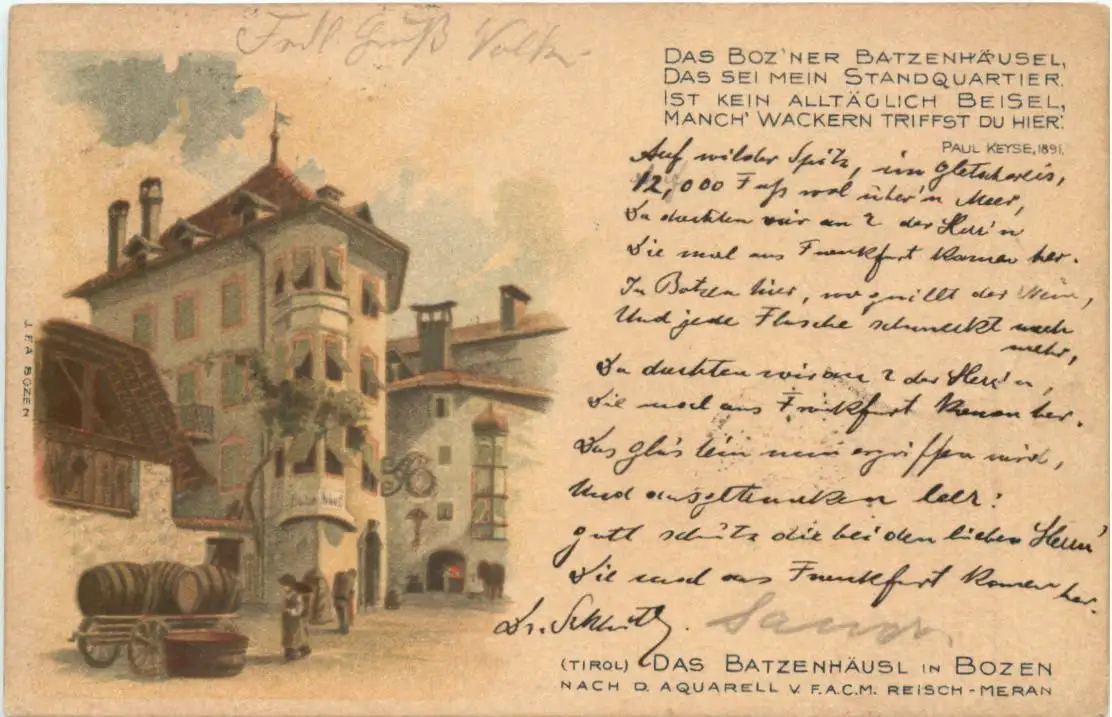 Frdl. Gruß Volk
DAS BOZ'NER BATZENHÄUSEL,
DAS SEI MEIN STANDQUARTIER.
IST KEIN ALLTÄGLICH BEISEL,
MANCH' WACKERN TRIFFST DU HIER.
PAUL KEYSE, 1891.
Auf wilder Spitz, im Gletschereis,
12,000 Fuss wol über'n Meer,
Da dachten wir an 2 der Herr'n
Die mal aus Frankfurt kamen her.
In Botzen hier, wo quillt der Wein,
Und jede Flasche schmeckt nach
mehr,
Da dachten wir an 2 der Herr'n,
Die mal aus Frankfurt kamen her.
Das Gläslein nun ergriffen wird,
Und ausgetrunken leer:
Gott schütz die beiden lieben Herrn'
Die mal aus Frankfurt kamen her.
Dr. Schultz.
J. F. A. BOZEN
(TIROL) DAS BATZENHÄUSL IN BOZEN
NACH D. AQUARELL V. F.A.C.M. REISCH-MERAN